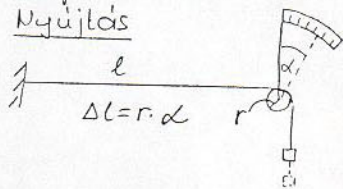 Nyújtás
l
α
Δl=r·α
r